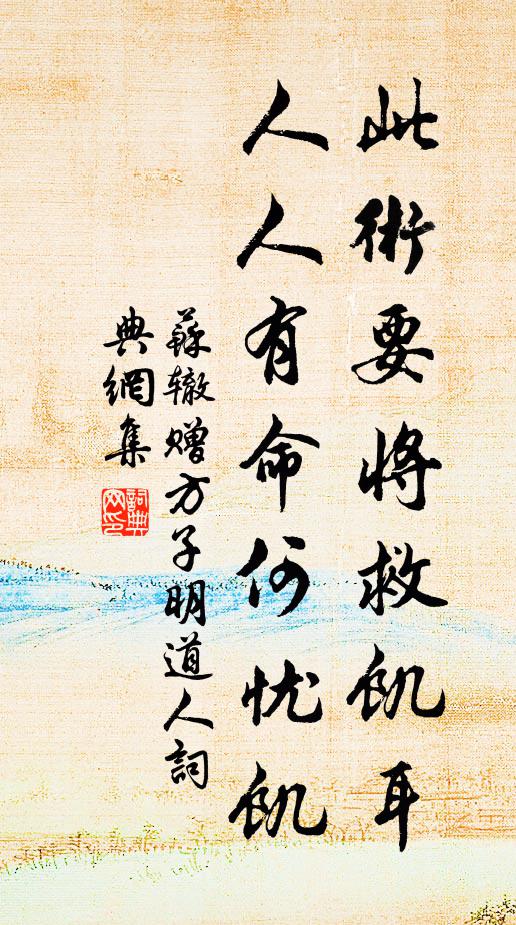 此術要將救飢耳
人人有命何憂飢
蘇轍贈方子明道人詞
典網集
詞典
网印